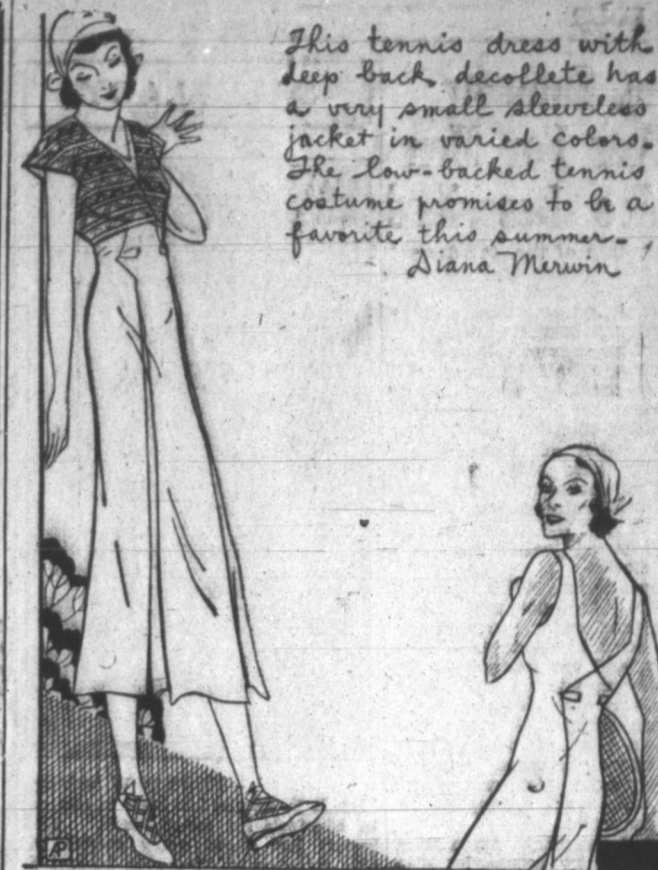 This tennis dress with
deep back decollete has
a very small sleeveless
jacket in varied colors.
The low-backed tennis
costume promises to be a
favorite this summer-
Diana Merwin